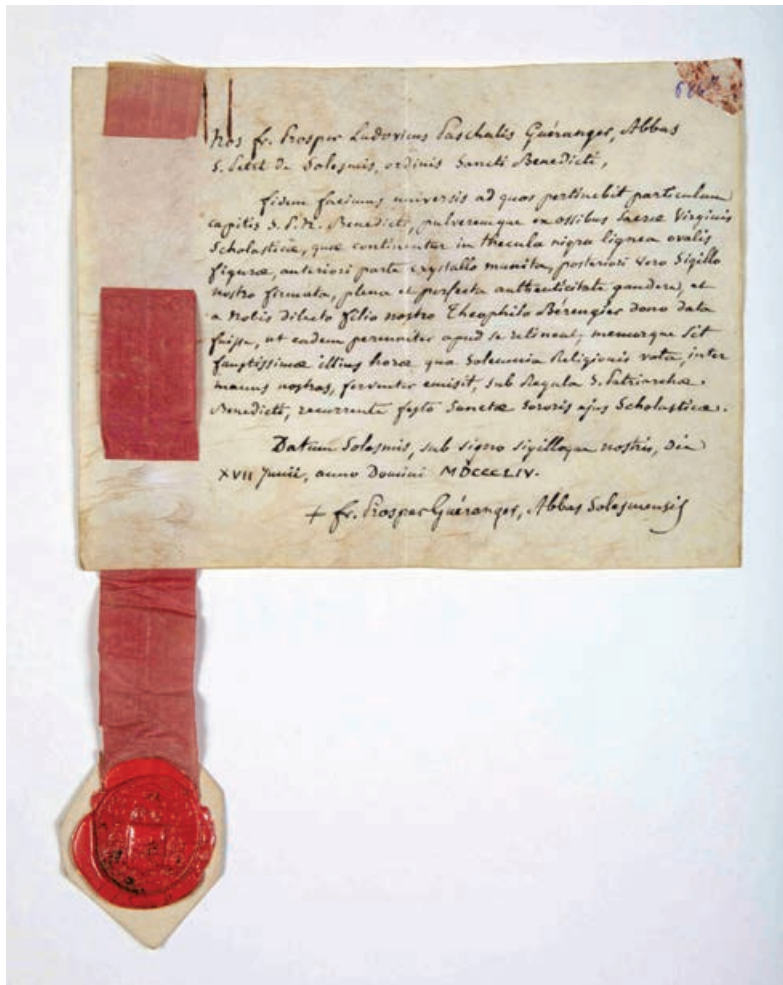 Nos fr. Prosper Ludovicus Paschalis Guéranger, Abbas
S. Petri de Solesmis, ordinis Sancti Benedicti,
fidem facimus universis ad quos pertinebit particulam
capitis S. P. N. Benedicti, pulveremque ex ossibus sacræ Virginis
Scholasticæ, quæ continentur in thecula nigra lignea ovalis
figuræ, anteriori parte crystallo munita, posteriori vero sigillo
nostro firmata, plena et perfecta authenticitate gaudere, et
a nobis dilecto filio nostro Theophilo Bérengier dono data
fuisse, ut eadem perenniter apud se retineat, memorque sit
faustissimæ illius horæ qua solemnia Religionis vota, inter
manus nostras, ferventer emisit, sub Regula S. Patriarchæ
Benedicti, recurrente festo Sanctæ Sororis ejus Scholasticæ.
Datum Solesmis, sub signo sigilloque nostris, die
XVII Junii, anno Domini MDCCCLIV.
+ fr. Prosper Guéranger, Abbas Solesmensis